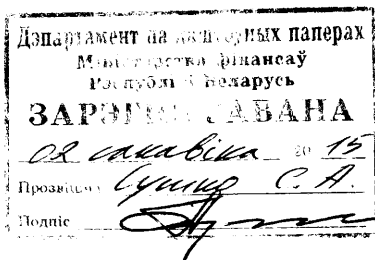 Дэпартамент па каштоўных паперах
Міністэрства фінансаў
Рэспублікі Беларусь
ЗАРЭГІСТРАВАНА
02 сакавіка 2015
Прозвішча С. А.
Подпіс